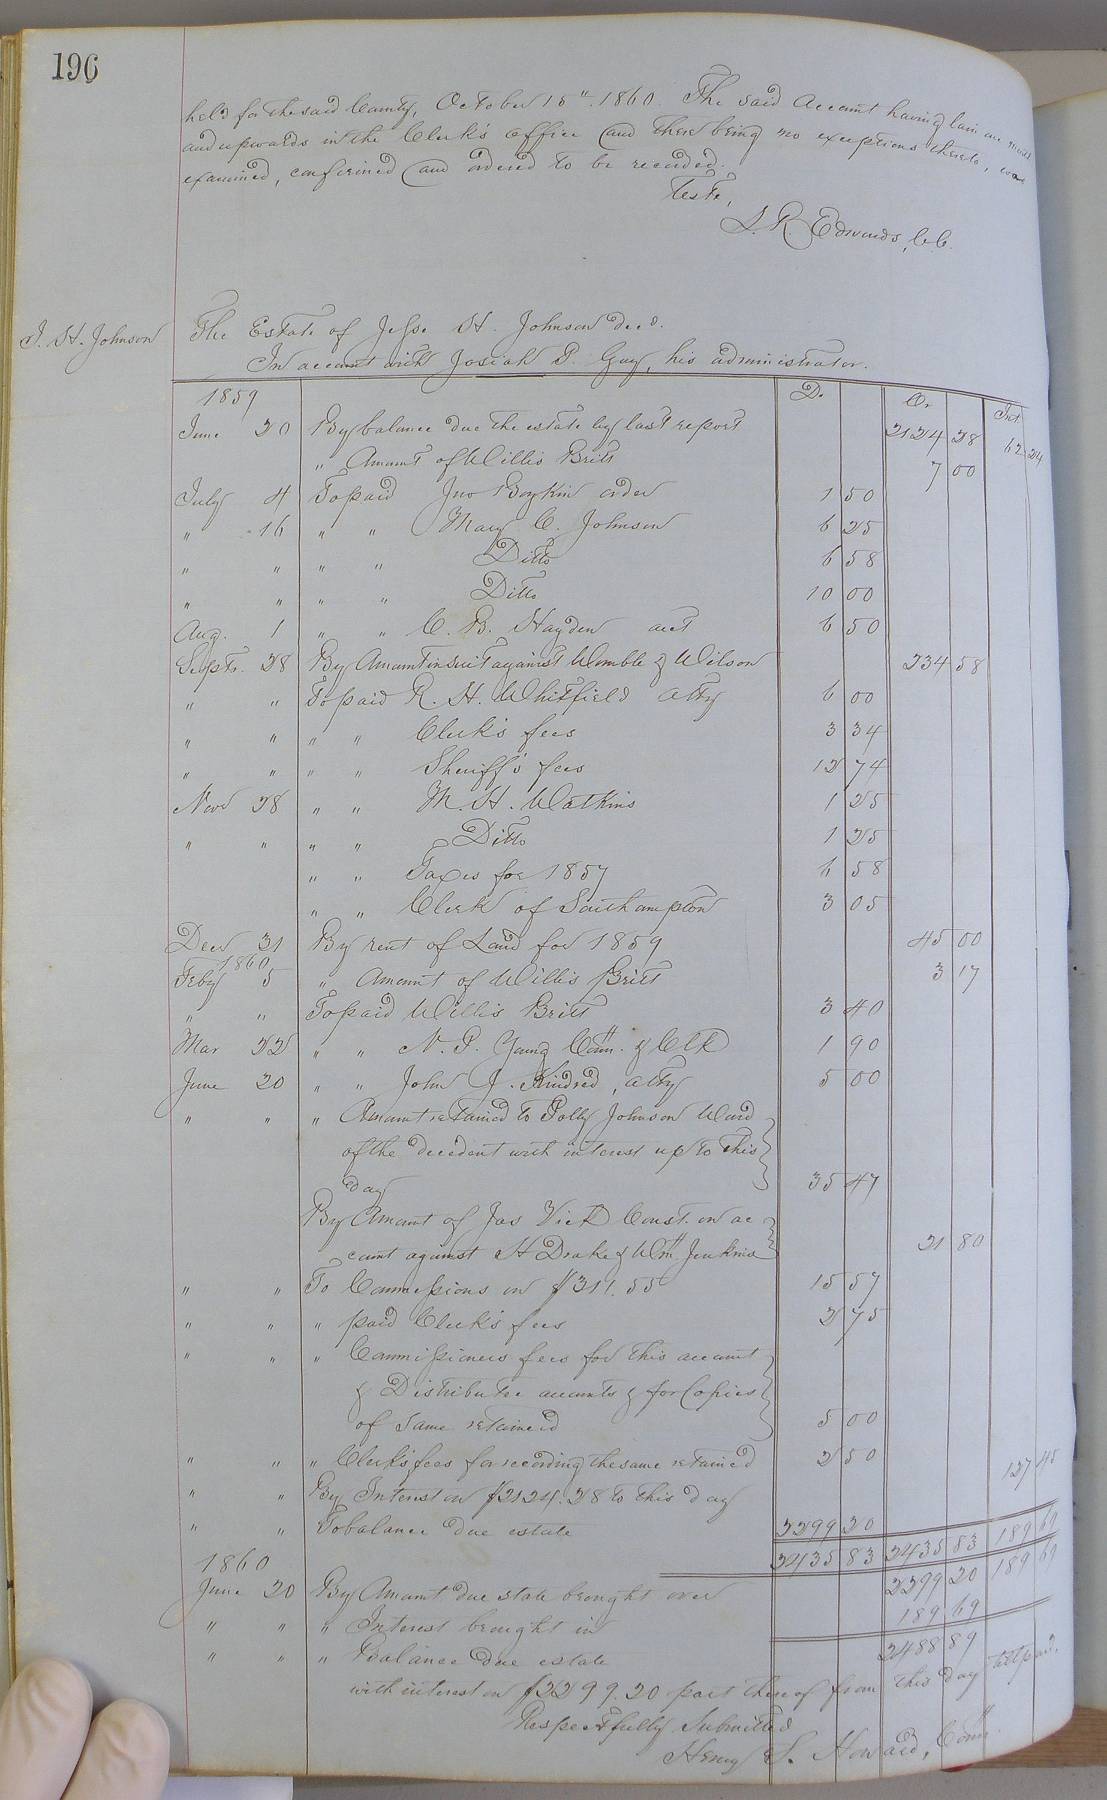 196
held for the said County, October 15th 1860. The said Account having lain one month
and upwards in the Clerk's office and there being no exceptions thereto, was
examined, confirmed and ordered to be recorded.
Teste,
L. R. Edwards, C.C.
J. H. Johnson
The Estate of Jesse H. Johnson decd.
In account with Josiah P. Gay, his administrator.
1859 Dr. Cr. Int.
June 20 By balance due the estate by last report 2124 28 62 24
" Amount of Willis Britt 7 00
July 4 To paid Jno Boykin order 1 50
" 16 " " Mary C. Johnson 6 25
" " " " Ditto 6 58
" " " " Ditto 10 00
Aug. 1 " " C. B. Hayden acct 6 50
Septr. 28 By Amount in suit against Womble & Wilson 234 58
" " To paid R. H. Whitfield atty 6 00
" " " " Clerk's fees 3 34
" " " " Sheriff's fees 12 74
Novr 28 " " M. H. Watkins 1 25
" " " " Ditto 1 25
" " Taxes for 1857 6 58
" " Clerk of Southampton 3 05
Decr 31 By rent of Land for 1859 45 00
1860
Feby 5 " Amount of Willis Britt 3 17
" " To paid Willis Britt 3 40
Mar 22 " " N. P. Young Com. & Clk 1 90
June 20 " " John J. Kindred, atty 5 00
" " " Amount retained to Polly Johnson Ward
of the decedent with interest up to this
day 35 47
By Amount of Jas Vick Const. on ac
count against H Drake & Wm. Jenkins 21 80
" " To Commissions on $311.55 15 57
" " " paid Clerk's fees 2 75
" " " Commissioners fees for this account
& Distributee accounts & for Copies
of same retained 5 00
" " " Clerk's fees for recording the same retained 2 50
" " By Interest on $2124.28 to this day 127 45
" " To balance due estate 2299 20
2435 83 2435 83 189 69
1860
June 20 By Amount due state brought over 2299 20 189 69
" " " Interest brought in 189 69
" " " Balance due estate 2488 89
with interest on $2299.20 part thereof from this day till paid.
Respectfully Submitted
Henry S. Howard, Comr.